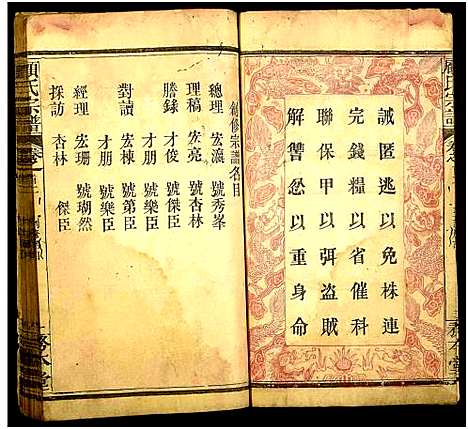 顧氏宗譜
誡匿逃以免株連
完錢糧以省催科
聯保甲以弭盜賊
解讐忿以重身命
創修宗譜名目
總理 宏瀛 號秀峯
理稿 宏亮 號杏林
謄錄 才俊 號傑臣
才朋 號樂臣
對讀 宏棟 號第臣
才朋 號樂臣
經理 宏珊 號瑚然
採訪 杏林 傑臣
顧氏宗譜
務本堂